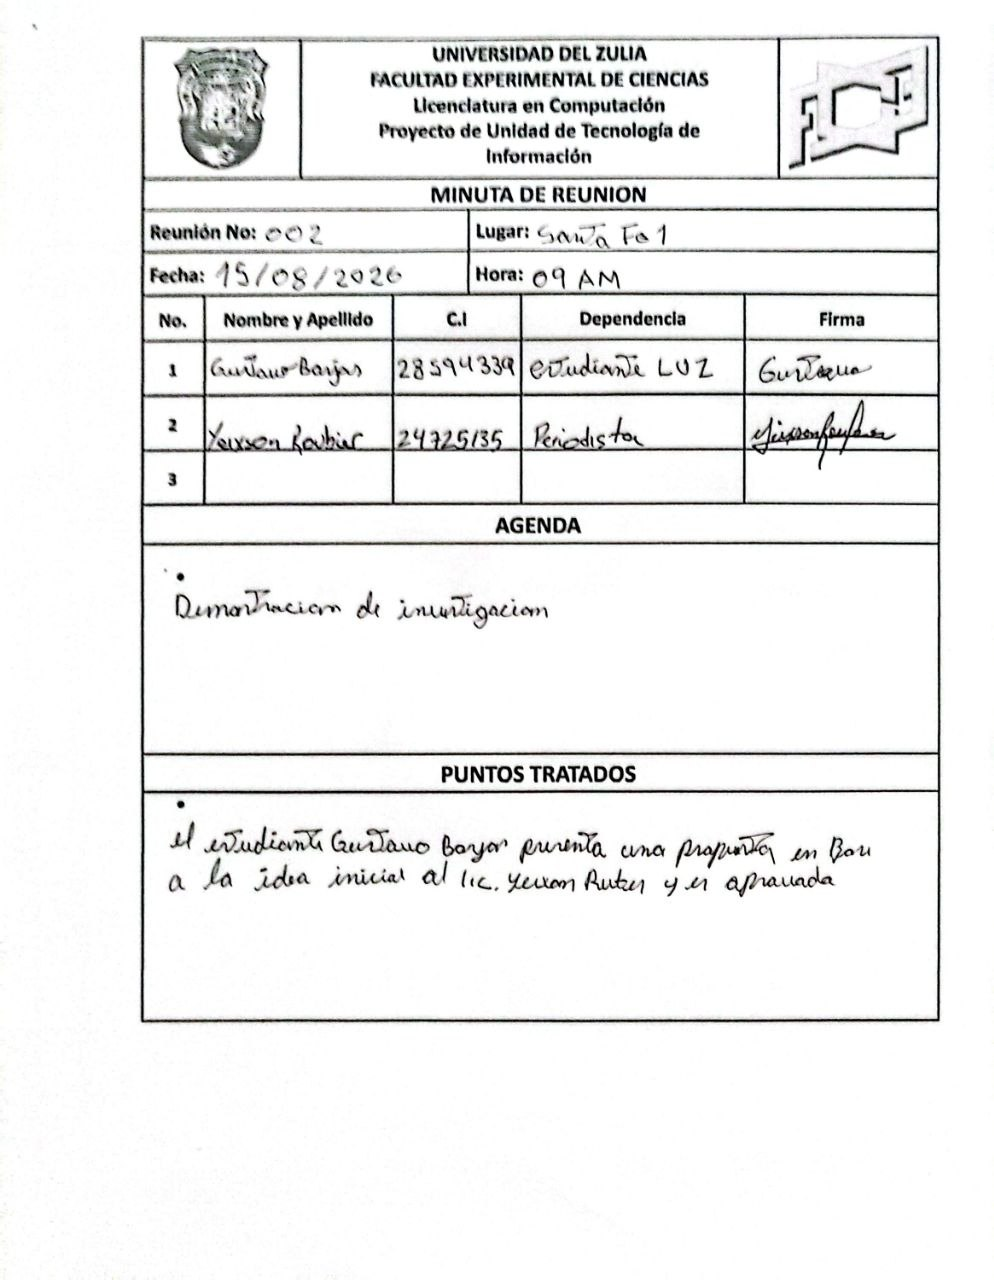 UNIVERSIDAD DEL ZULIA
FACULTAD EXPERIMENTAL DE CIENCIAS
Licenciatura en Computación
Proyecto de Unidad de Tecnología de
Información
MINUTA DE REUNION
Reunión No: 002
Lugar: Santa Fe 1
Fecha: 15/08/2026
Hora: 09 AM
No. Nombre y Apellido C.I Dependencia Firma
1 Gustavo 28594339 estudiante LUZ
2 Yeixson 24725135 Periodista
3
AGENDA
•
Demostracion de investigacion
PUNTOS TRATADOS
•
el estudiante Gustavo presenta una propuesta en
a la idea inicial al lic. y es